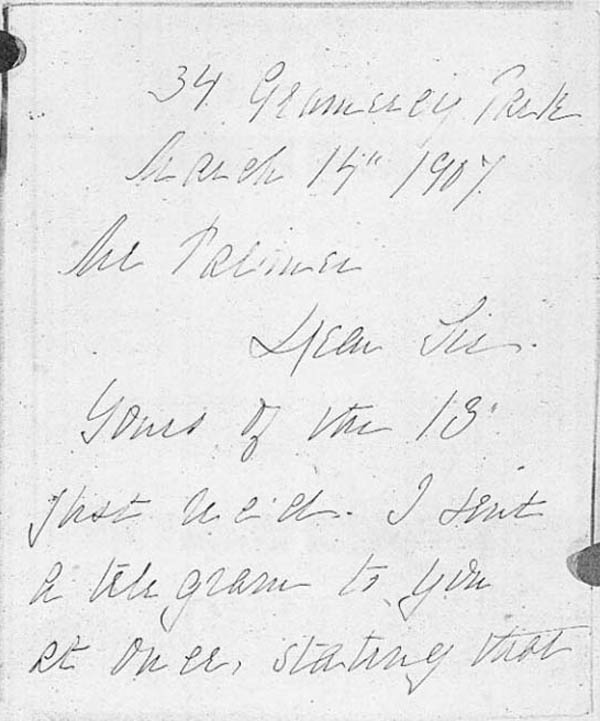 34 Gramercy Park
March 14" 1907
Mr
Dear Sir.
Yours of the 13"
just rec'd. I sent
a telegram to you
at once, stating that